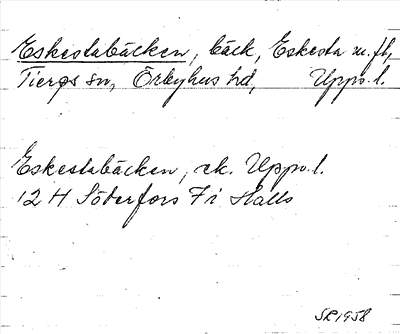 Eskestabäcken, bäck, Eskesta m.fl.,
Tierps sn, Örbyhus hd, Upps.l.
Eskestabäcken, ek. Upps.l.
12 H Söderfors 7 i Halls
SR 1958